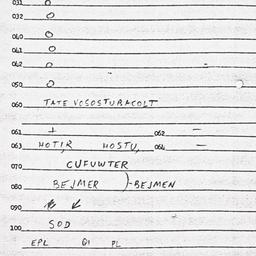 031 0
032 0
040 0
041 0
042 0 -
050 0
060 TATE VOSOSTURACOLT
061 1 062 -
063 HOTIR HOSTU, 064 -
070 CUFUWTER
080 BEJMER )-BEJMEN
090
100 SOD
EPL GI PL